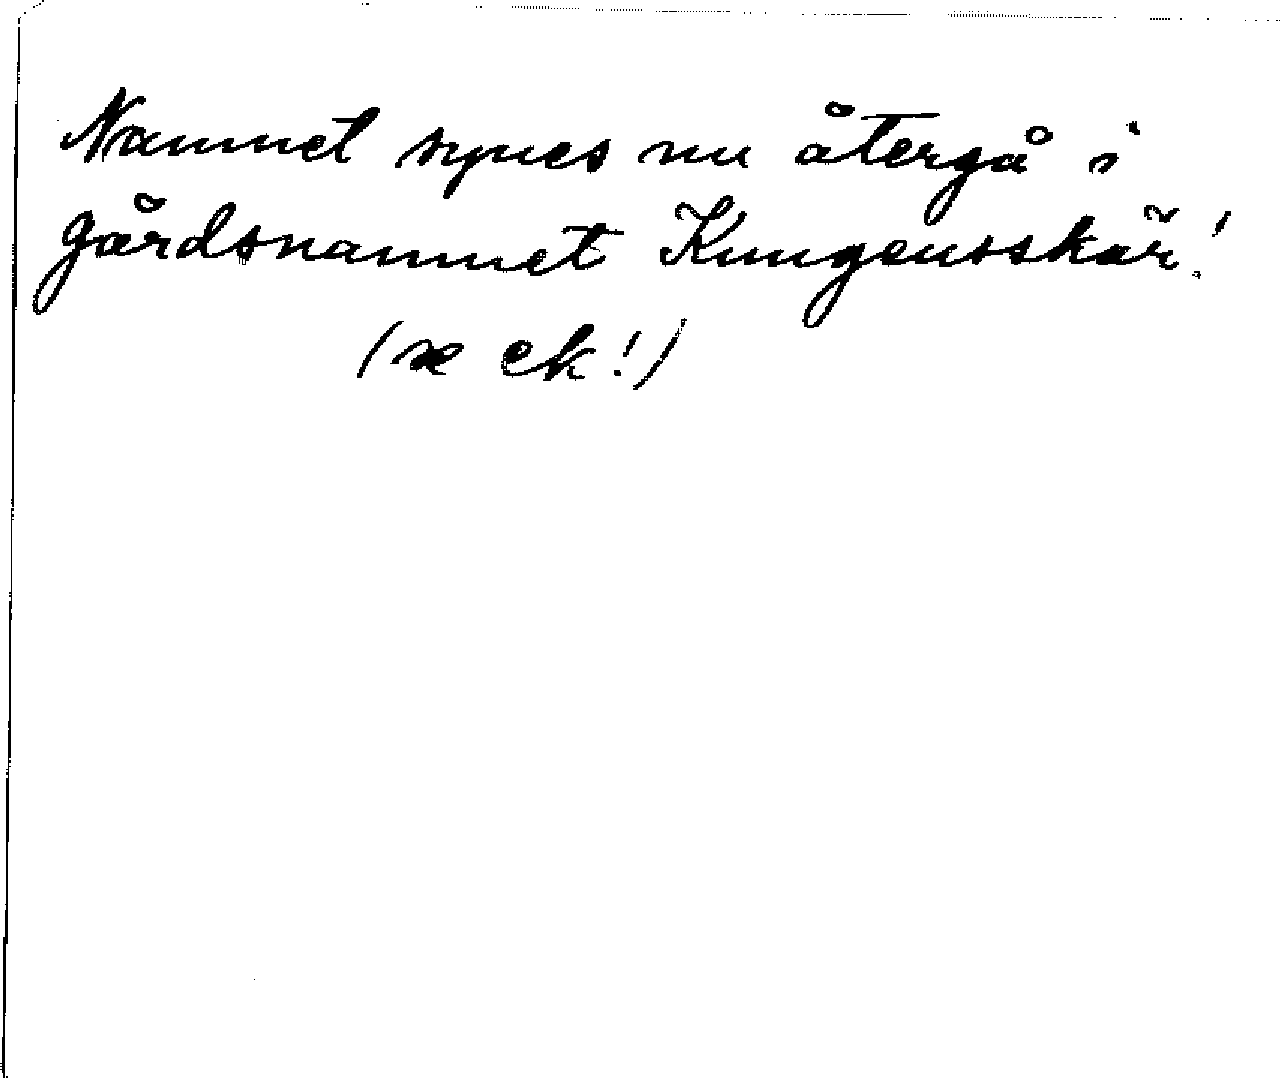 Namnet synes nu återgå i
gårdsnamnet Kungensskär!
(se ek!)